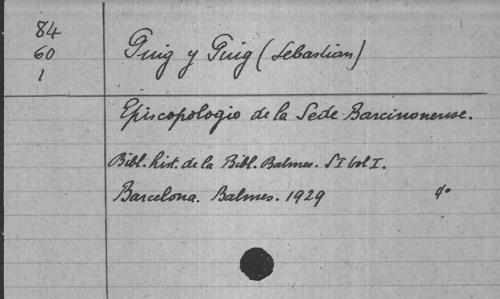 84
60
1
Puig y Puig (Sebastian)
Episcopologio de la Sede Barcinonense.
Bibl. hist. de la Bibl. Balmes. S I vol I.
Barcelona. Balmes. 1929 4º